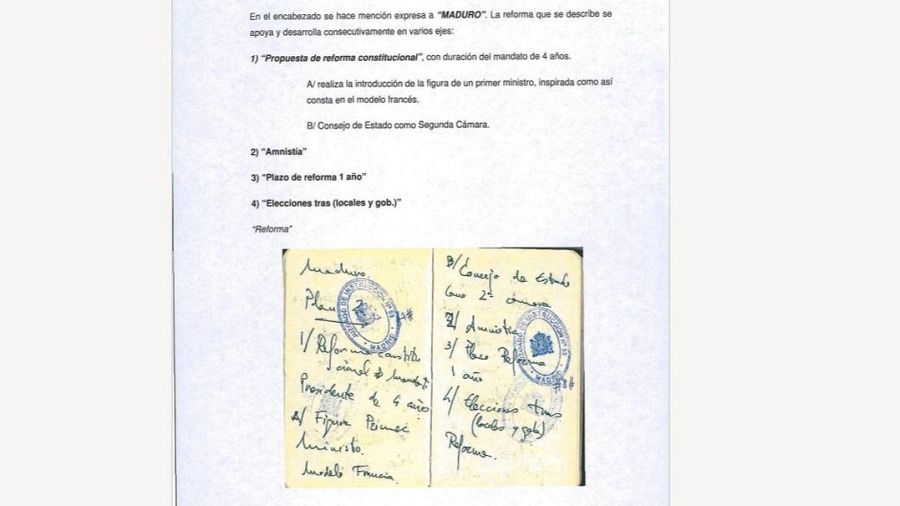 En el encabezado se hace mención expresa a "MADURO". La reforma que se describe se
apoya y desarrolla consecutivamente en varios ejes:
1) "Propuesta de reforma constitucional", con duración del mandato de 4 años.
A/ realiza la introducción de la figura de un primer ministro, inspirada como así
consta en el modelo francés.
B/ Consejo de Estado como Segunda Cámara.
2) "Amnistía"
3) "Plazo de reforma 1 año"
4) "Elecciones tras (locales y gob.)"
"Reforma"
Maduro.
Plan
1/ Reforma constitu
cional Mandato
Presidente de 4 años
A/ Figura Primer
Ministro.
Modelo Francia.
JUZGADO DE INSTRUCCIÓN Nº
MADRID
B/ Consejo de Estado
como 2ª cámara
2/ Amnistía
3/ Plazo Reforma
1 año
4/ Elecciones tras
(locales y gob)
Reforma.
JUZGADO DE INSTRUCCIÓN Nº
MADRID
#8#